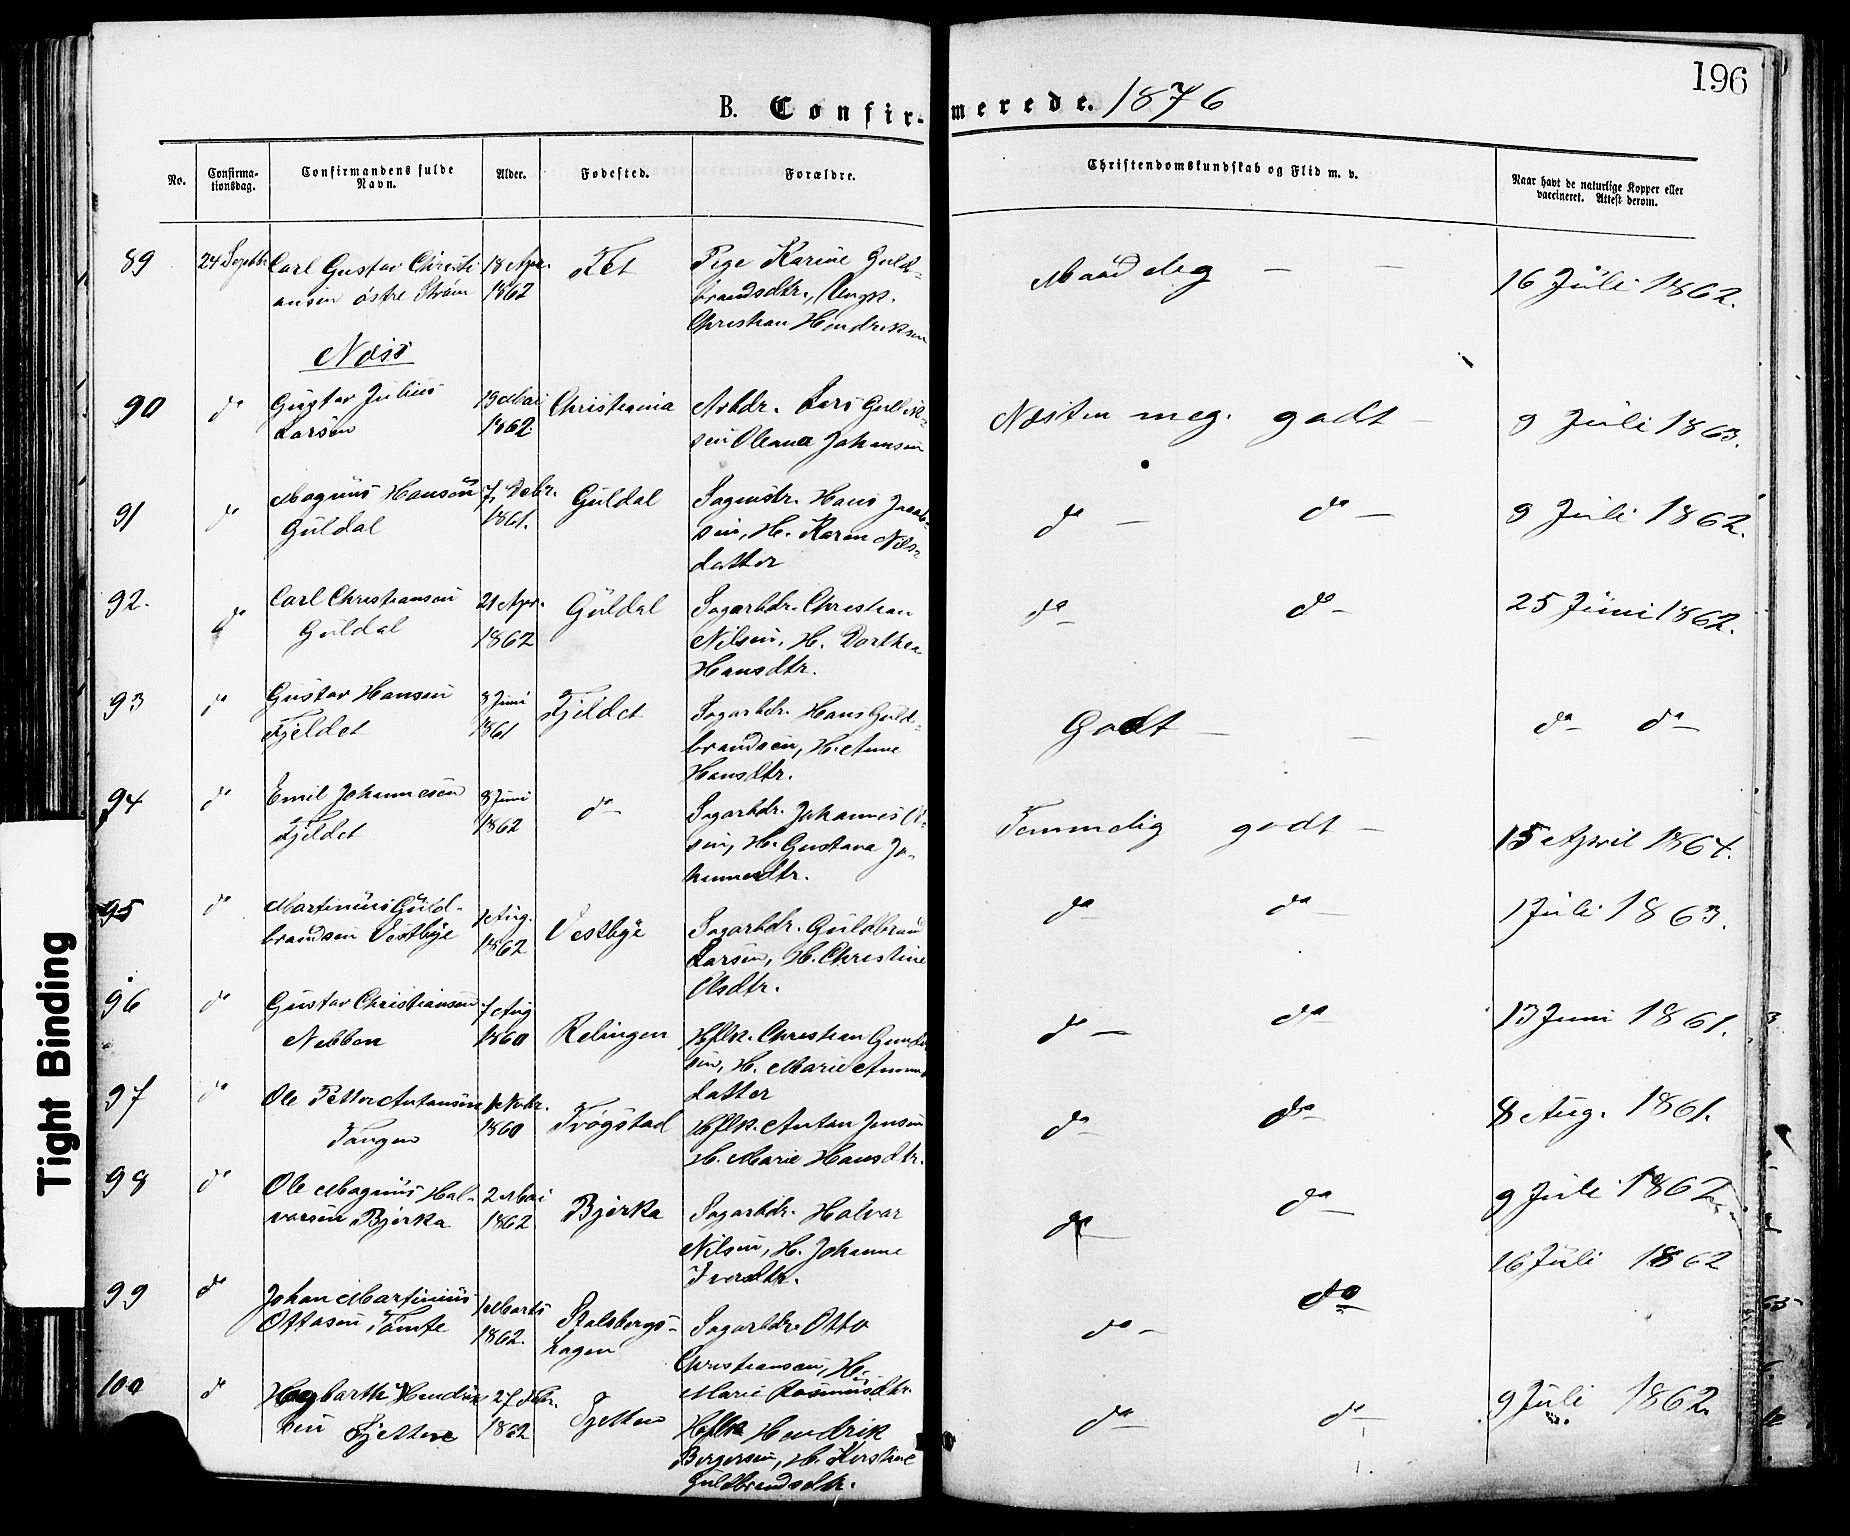 196
B. Confirmerede. 1876
No. Confirmationsdag. Confirmandens fulde Navn. Alder. Fødested. Forældre. Christendomskundskab og Flid m. v. Naar havt de naturlige Kopper eller vaccineret. Attest derom.
89 24 Septbr Carl Gustav Christi 18 Apr. Fet Pige Karine Guld- Maadelig — — 16 Juli 1862.
ansen østre Strøm 1862 brandsdtr., Ungk.
Christian Hendriksen
Næss
90 do Gustav Julius 19 Mai Christiania Arbdr. Lars Gullik- Næsten meg. godt — 9 Juli 1863.
Larsen 1862. sen Oleana Johansen
91 do Magnus Hansen 7 Debr. Guldal Sagmstr. Hans Jacob- do — do — 9 Juli 1862.
Guldal 1861. sen, H. Karen Nils-
datter
92. do Carl Christiansen 21 Apr. Guldal Sagarbdr. Christian do — do — 25 Juni 1862.
Guldal 1862 Nilsen, H. Dorthea
Hansdtr.
93 do Gustav Hansen 3 Juni Fjeldet Sagarbdr. Hans Guld- Godt — — do — do —
Fjeldet 1861 brandsen, H. Anne
Hansdtr.
94 do Emil Johannesen 8 Juni do — Sagarbdr. Johannes Ol- Temmelig godt — 15 April 1864.
Fjeldet 1862 sen, H. Gustava Jo-
hannesdtr.
95 do Martinius Guld- 1 Aug. Vestbye Sagarbdr. Guldbrand do do — 1 Juli 1863.
brandsen Vestbye 1862 Larsen, H. Christine
Olsdtr.
96 do Gustav Christiansen 7 Aug Relingen Hflk. Christian Gunder do — do 13 Juni 1861.
Nebben 1860 sen, H. Marie Amund
datter
97 do Ole Petter Antonsen 1 Novbr. Trøgstad Hflk. Anton Jensen do — do — 8 Aug. 1861.
Tangen 1860 H. Marie Hansdtr.
98 do Ole Magnus Hal- 2 Mai Bjerka Sagarbdr. Halvar do — do — 9 Juli 1862
varsen Bjerka 1862 Nilsen, H. Johanne
Iversdtr.
99 do Johan Martinius 1 Marts Stalsbergs- Sagarbdr. Otto do — do 16 Juli 1862
Ottosen Tomte 1862. hagen Christiansen, H.
Marie Rasmusdtr.
100 do Hagbarth Hendrik 27 Febr. Tjetten Hflk Hendrik do — do — 9 Juli 1862.
sen Tjetten 1862 Bergersen, H. Kirstine
Guldbrandsdtr.
Tight Binding